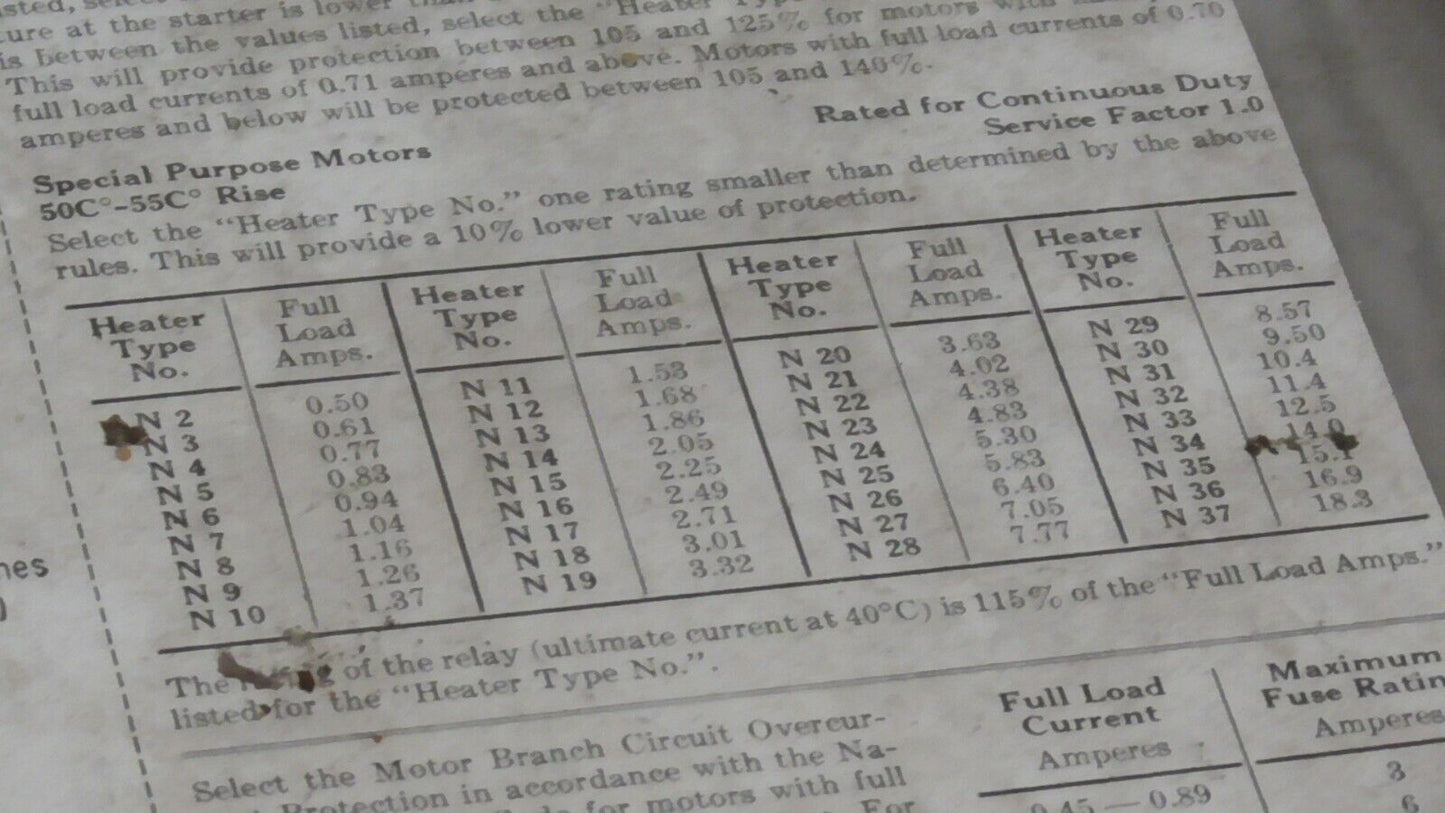 ure at the starter is lower
is between the values listed, select the "Heater
This will provide protection between 105 and 125% for motors with
full load currents of 0.71 amperes and above. Motors with full load currents of 0.70
amperes and below will be protected between 105 and 140%.
Special Purpose Motors Rated for Continuous Duty
50C°-55C° Rise Service Factor 1.0
Select the "Heater Type No." one rating smaller than determined by the above
rules. This will provide a 10% lower value of protection.
Heater Type No. Full Load Amps. Heater Type No. Full Load Amps. Heater Type No. Full Load Amps. Heater Type No. Full Load Amps.
N 2 0.50 N 11 1.53 N 20 3.63 N 29 8.57
N 3 0.61 N 12 1.68 N 21 4.02 N 30 9.50
N 4 0.77 N 13 1.86 N 22 4.38 N 31 10.4
N 5 0.83 N 14 2.05 N 23 4.83 N 32 11.4
N 6 0.94 N 15 2.25 N 24 5.30 N 33 12.5
N 7 1.04 N 16 2.49 N 25 5.83 N 34 14.0
N 8 1.16 N 17 2.71 N 26 6.40 N 35
N 9 1.26 N 18 3.01 N 27 7.05 N 36 16.9
N 10 1.37 N 19 3.32 N 28 7.77 N 37 18.3
The of the relay (ultimate current at 40°C) is 115% of the "Full Load Amps."
listed for the "Heater Type No.".
Select the Motor Branch Circuit Overcur-
Protection in accordance with the Na-
for motors with full
For
Full Load
Current
Amperes
0.45 — 0.89
Maximum
Fuse Ratin
Amperes
3
6
nes